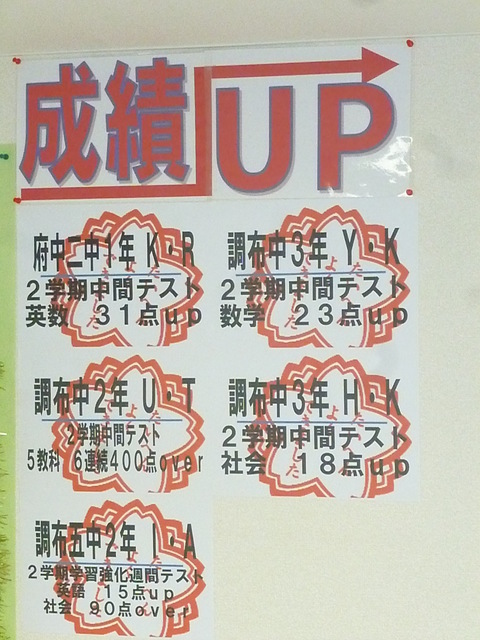 成績UP
府中二中1年 K・R
2学期中間テスト
英数 31点up
調布中3年 Y・K
2学期中間テスト
数学 23点up
調布中2年 U・T
2学期中間テスト
5教科 6連続400点over
調布中3年 H・K
2学期中間テスト
社会 18点up
調布五中2年 I・A
2学期学習強化週間テスト
英語 15点up
社会 90点over